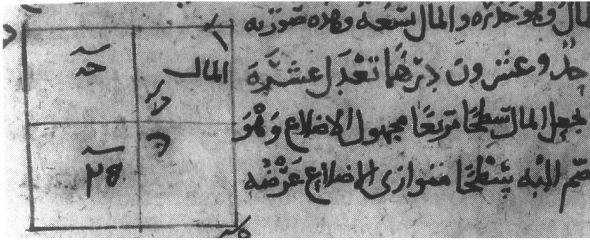 مال وهو جذره والمال تسعة وهذه صورته
حد وعشرون درهما تعدل عشرة
نجعل المال سطحا مربعا مجهول الاضلاع وهو
ضم اليه سطحا متوازى الاضلاع عرضه
المال